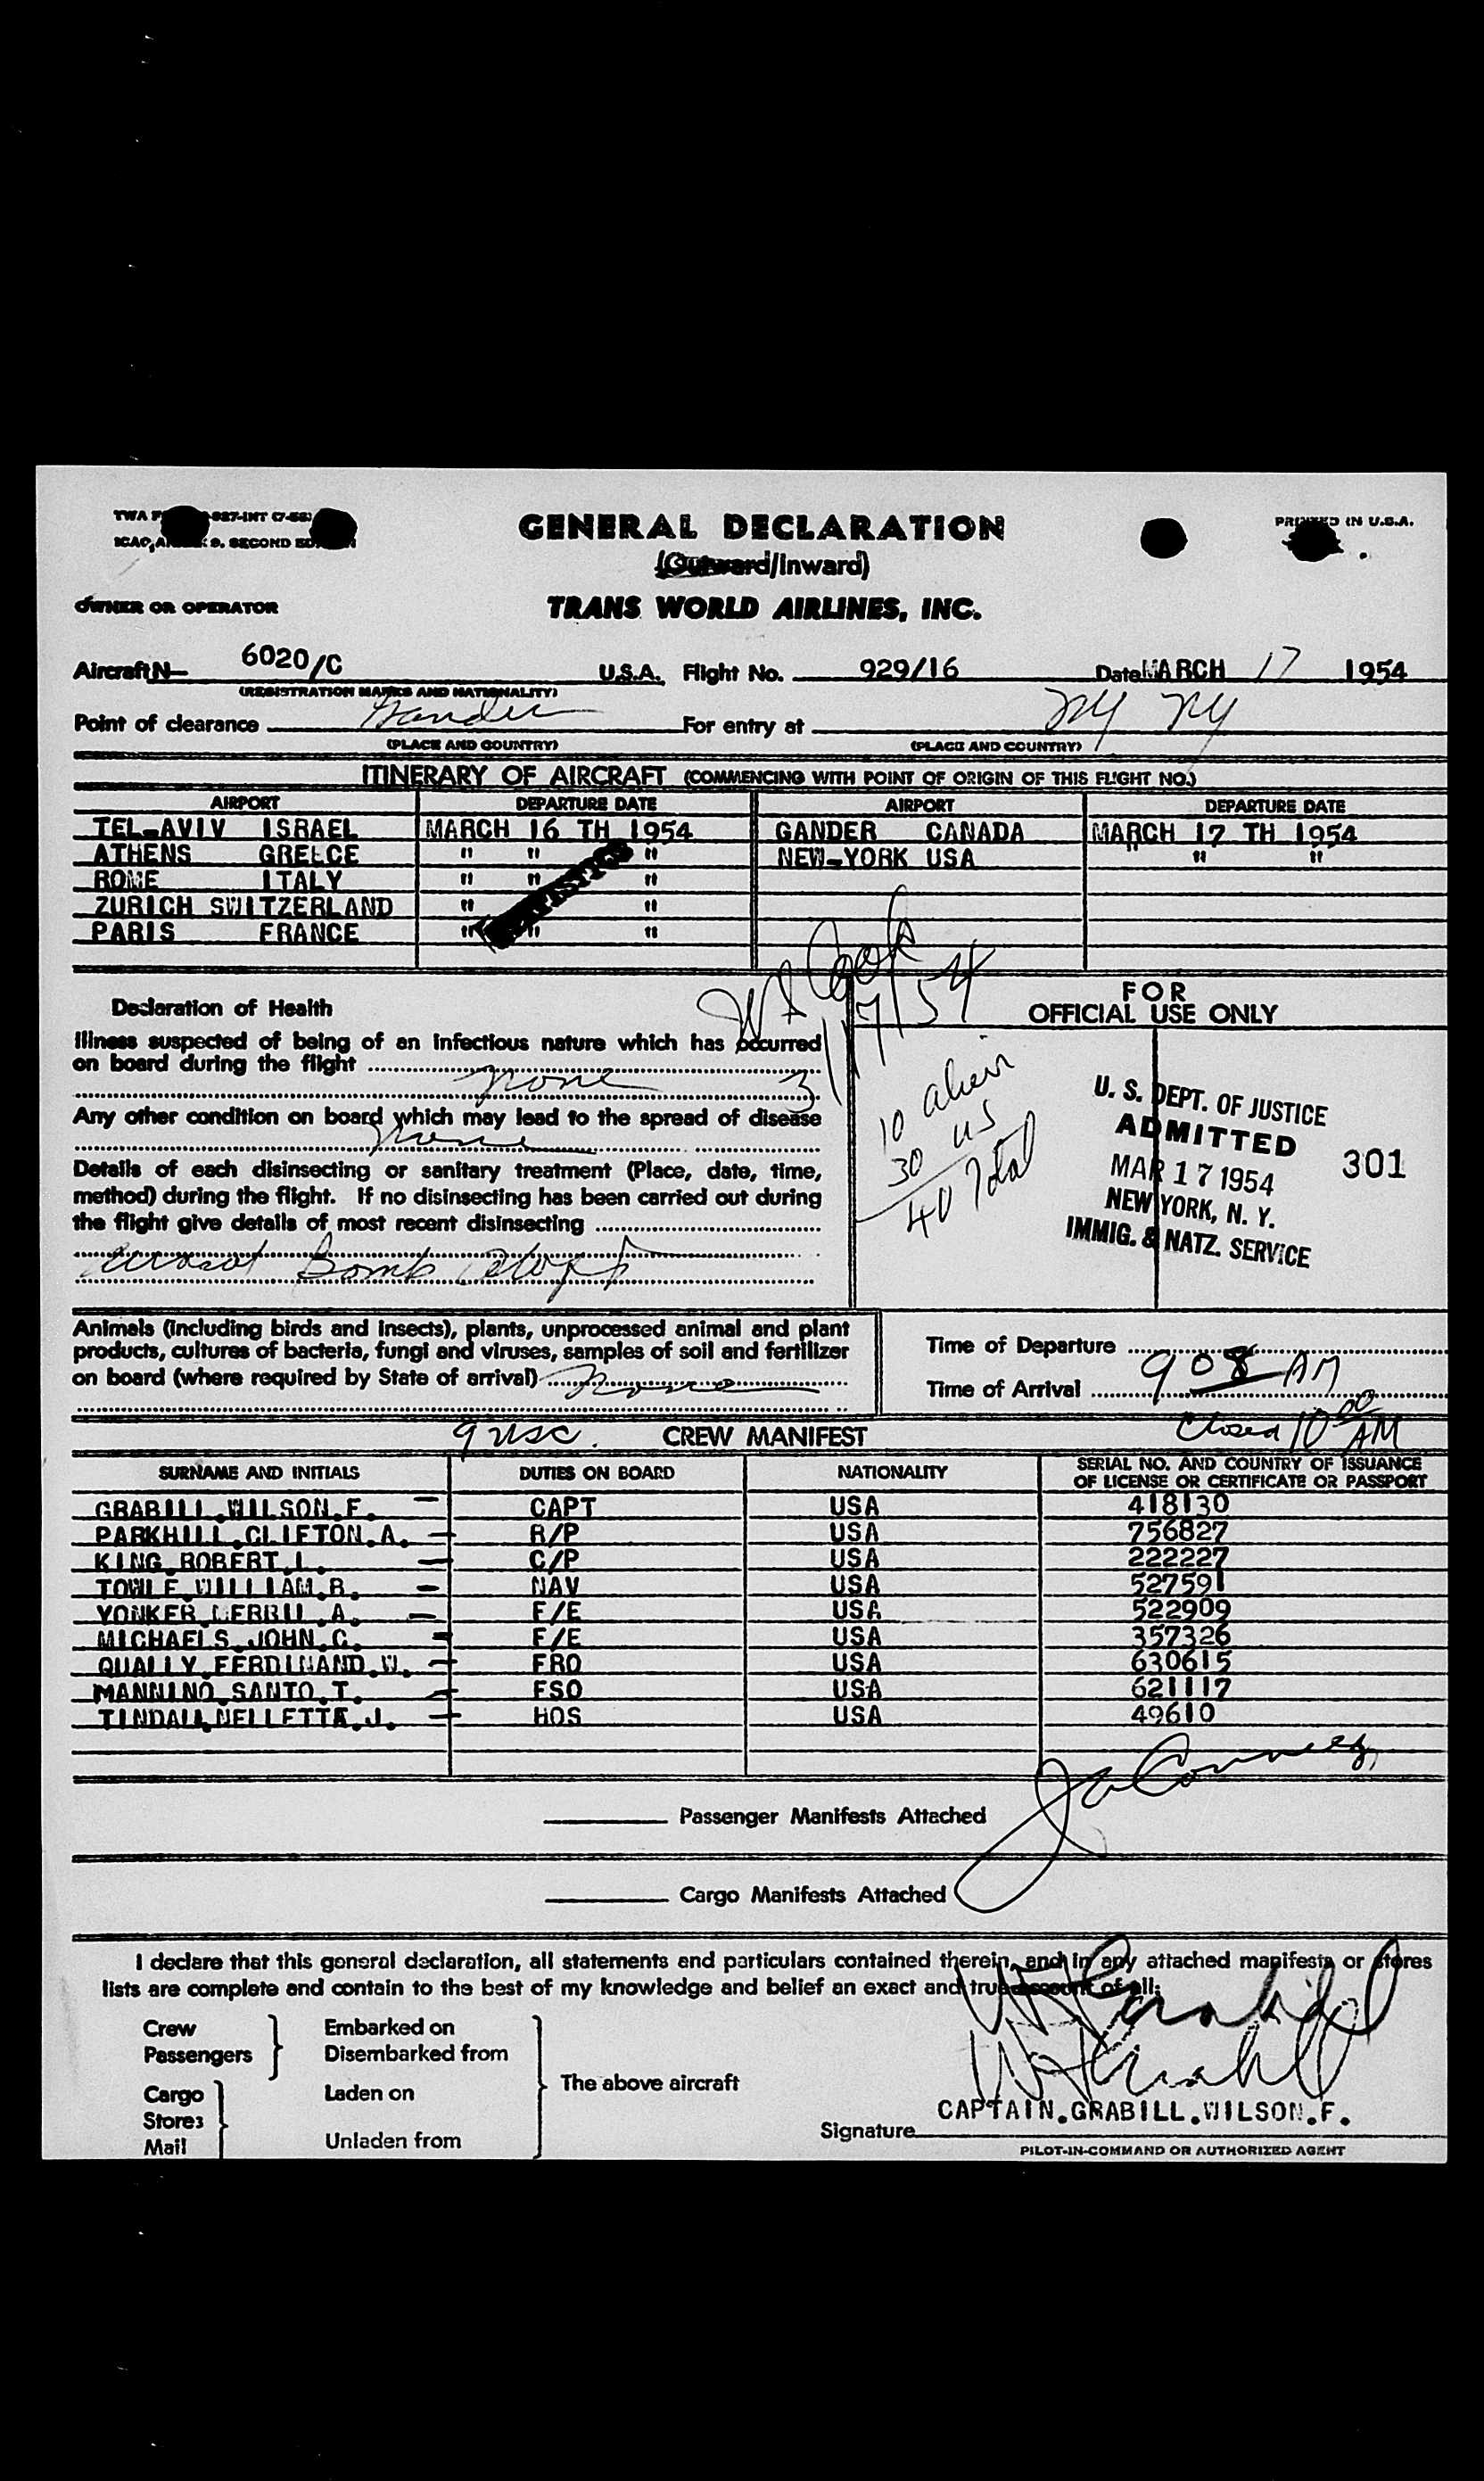 GENERAL DECLARATION
PRINTED IN U.S.A.
(Outward/Inward)
OWNER OR OPERATOR TRANS WORLD AIRLINES, INC.
Aircraft N- 6020/C U.S.A. Flight No. 929/16 Date MARCH 17 1954
(REGISTRATION MARKS AND NATIONALITY)
Point of clearance Gander For entry at NY NY
(PLACE AND COUNTRY) (PLACE AND COUNTRY)
ITINERARY OF AIRCRAFT (COMMENCING WITH POINT OF ORIGIN OF THIS FLIGHT NO.)
AIRPORT DEPARTURE DATE AIRPORT DEPARTURE DATE
TEL-AVIV ISRAEL MARCH 16 TH 1954 GANDER CANADA MARCH 17 TH 1954
ATHENS GREECE " " " NEW-YORK USA " " "
ROME ITALY " " "
ZURICH SWITZERLAND " "
PARIS FRANCE " " "
STATISTICS
3/17/54
Declaration of Health
Illness suspected of being of an infectious nature which has occurred
on board during the flight
none
Any other condition on board which may lead to the spread of disease
none
Details of each disinsecting or sanitary treatment (Place, date, time,
method) during the flight. If no disinsecting has been carried out during
the flight give details of most recent disinsecting
Aerosol Bomb
FOR
OFFICIAL USE ONLY
10 alien
30 US
40 Total
U. S. DEPT. OF JUSTICE
ADMITTED
MAR 17 1954
NEW YORK, N. Y.
IMMIG. & NATZ. SERVICE
301
Animals (including birds and insects), plants, unprocessed animal and plant
products, cultures of bacteria, fungi and viruses, samples of soil and fertilizer
on board (where required by State of arrival) none
Time of Departure
Time of Arrival 908 AM
Closed 10 00 AM
9 USC. CREW MANIFEST
SURNAME AND INITIALS DUTIES ON BOARD NATIONALITY SERIAL NO. AND COUNTRY OF ISSUANCE
OF LICENSE OR CERTIFICATE OR PASSPORT
GRABILL.WILSON.F. CAPT USA 418130
PARKHILL.CLIFTON.A. R/P USA 756827
KING.ROBERT.L. C/P USA 222227
TOWLE.WILLIAM.B. NAV USA 527591
YONKER.MERRIL.A. F/E USA 522909
MICHAELS.JOHN.C. F/E USA 357326
QUALLY.FERDINAND.W. FRO USA 630615
MANNINO.SANTO.T. FSO USA 621117
TINDALL.NELLETTA.J. HOS USA 49610
Passenger Manifests Attached
Cargo Manifests Attached
I declare that this general declaration, all statements and particulars contained therein, and in any attached manifests or stores
lists are complete and contain to the best of my knowledge and belief an exact and true account of all:
Crew
Passengers
Embarked on
Disembarked from
Cargo
Stores
Mail
Laden on
Unladen from
The above aircraft
WF Grabill
WF Grabill
CAPTAIN.GRABILL.WILSON.F.
Signature
PILOT-IN-COMMAND OR AUTHORIZED AGENT